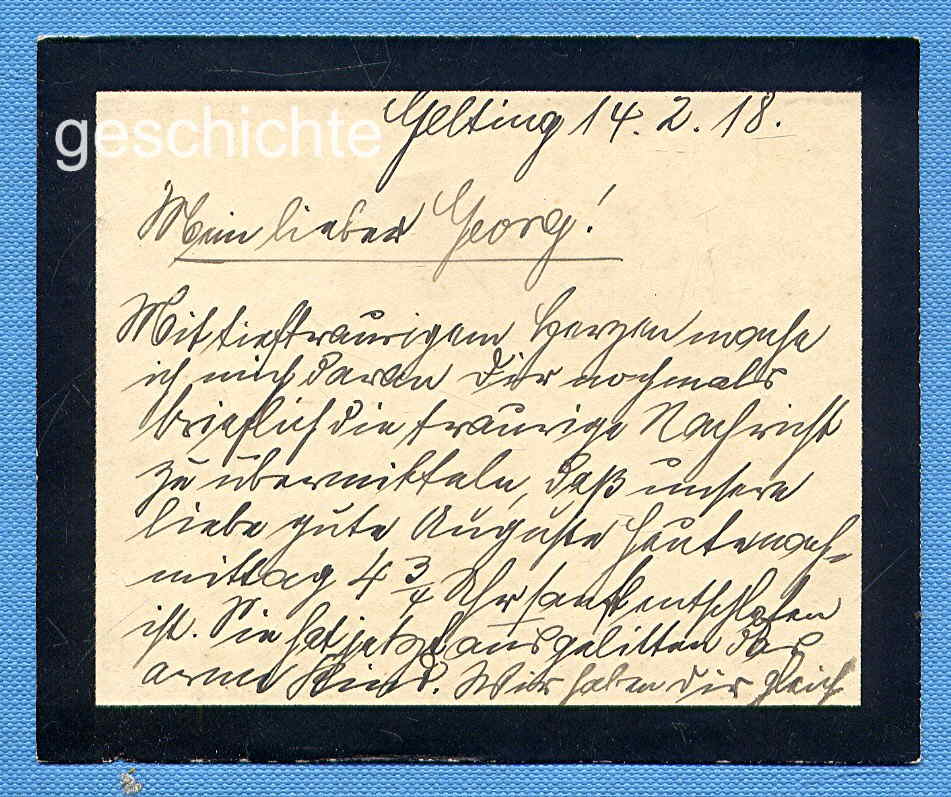 geschichte
Gelting 14. 2. 18.
Mein lieber Georg!
Mit tieftraurigem Herzen mache
ich mich daran Dir nochmals
brieflich die traurige Nachricht
zu übermitteln, daß unsere
liebe gute Auguste heute nach-
mittag 4 3/4 Uhr sanft entschlafen
ist. Sie hat jetzt ausgelitten das
arme Kind. Wir haben dir gleich